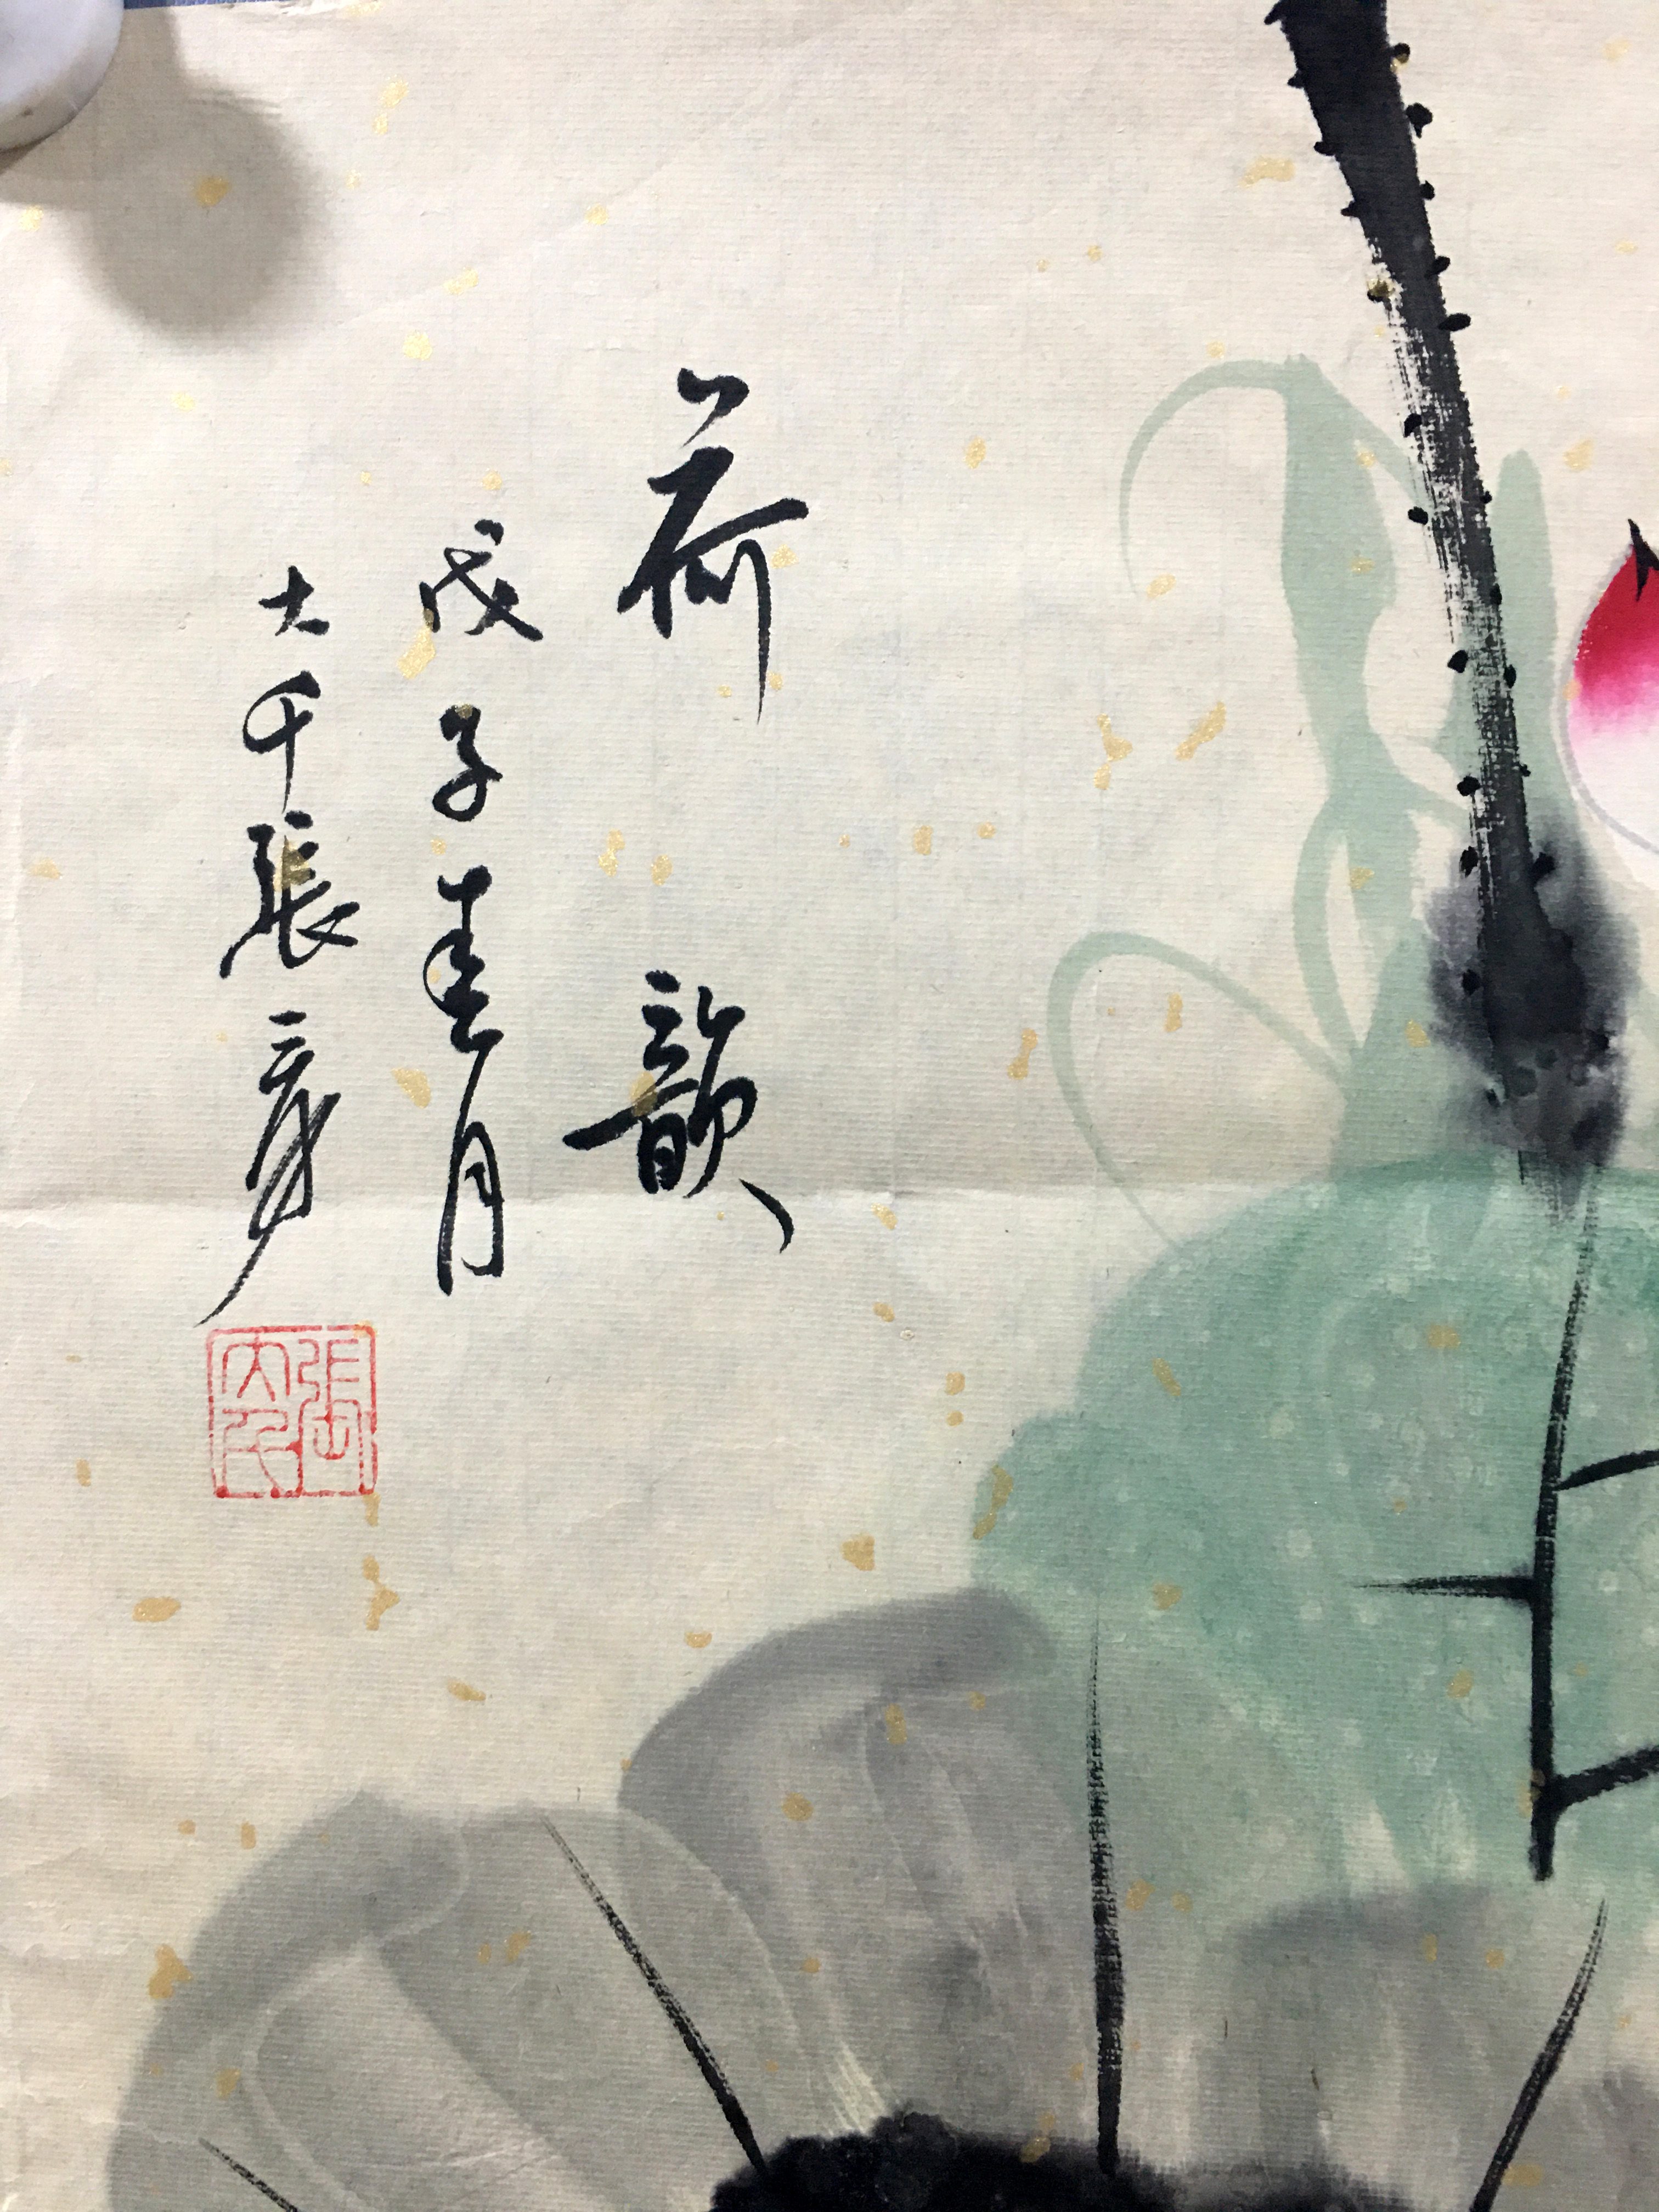 荷韻
戊子春月
大千張爰
張大